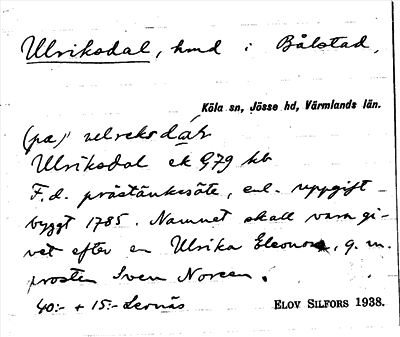 Ulriksdal, hmd i Bålstad,
Köla sn, Jösse hd, Värmlands län.
(pa)
Ulriksdal ek G79 hb
F.d. prästänkesäte, enl. uppgift
byggt 1785. Namnet skall vara gi-
vet efter en Ulrika Eleonora, g. m.
prosten Sven Noreen.
40:- + 15:-
ELOV SILFORS 1938.